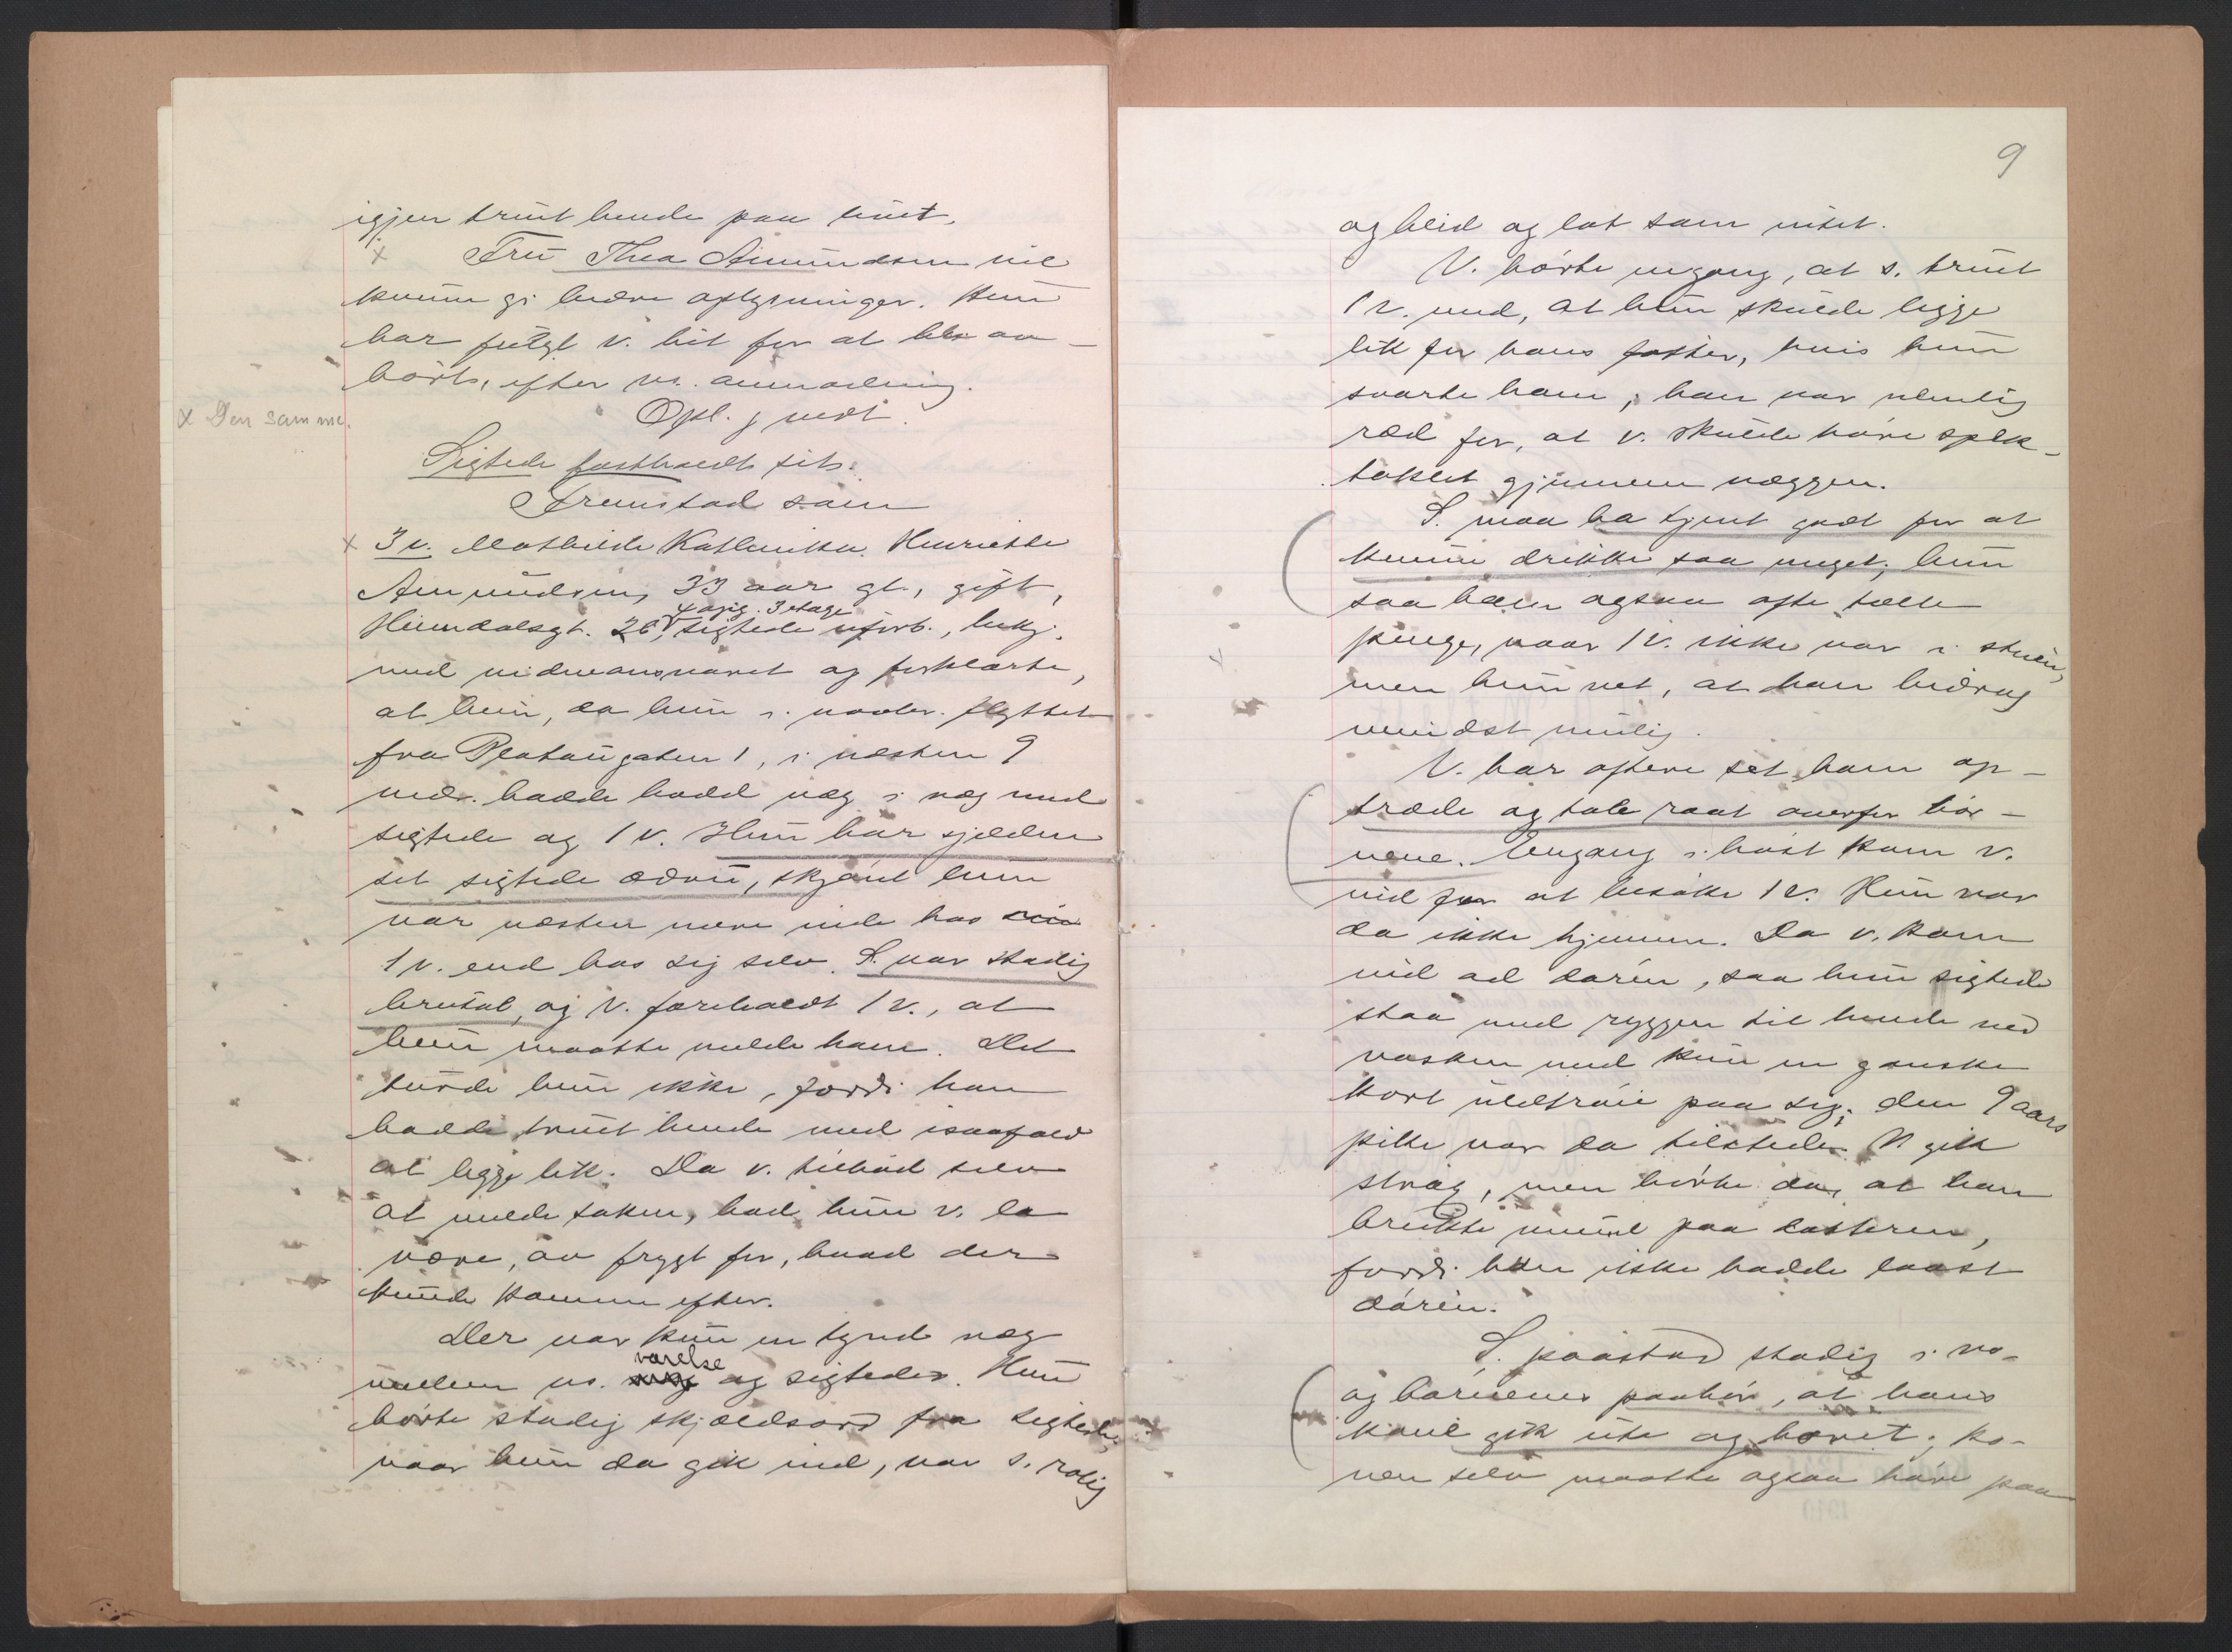 igjen truet hende paa livet.
x Fru Thea Amundsen vil
kunne gi bedre oplysninger. Hun
har fulgt v. hit for at bli av-
hørt, efter vs. anmodning.
Opl. g vedt.
x Den samme.
Sigtede fastholdt sit.
Fremstod som
x 3 v. Mathilde Kathinka Henriette
Amundsen, 33 aar gl., gift,
opg. 3 etage
Heimdalsgt. 26, sigtede uforb., bekj.
med vidneansvaret og forklarte,
at hun, da hun i novbr. flyttet
fra Platougaten 1, i næsten 9
mdr. hadde bodd væg i væg med
sigtede og 1 v. Hun har sjelden
set sigtede ædru, skjønt hun
var næsten mere inde hos
1 v. end hos sig selv. S. var stadig
brutal, og v. foreholdt 1 v., at
hun maatte melde ham. Det
turde hun ikke, fordi han
hadde truet hende med isaafald
at ligge lik. Da v. tilbød selv
at melde saken, bad hun v. la
være, av frygt for, hvad der
kunde komme efter.
Der var kun en tynd væg
værelse
mellem vs. og sigtedes. Hun
hørte stadig skjældsord fra sigtede,
naar hun da gik ind, var s. rolig
9
og blid og lot som intet.
V. hørte engang, at s. truet
1 v. med, at hun skulde ligge
lik for hans føtter, hvis hun
svarte ham; han var nemlig
ræd for, at v. skulde høre spek-
taklet gjennem væggen.
S. maa ha tjent godt for at
kunne drikke saa meget; hun
saa ham ogsaa ofte tælle
penge, naar 1 v. ikke var i stuen,
men hun vet, at han bidrog
mindst mulig.
V. har oftere set ham op-
træde og tale raat overfor bør-
nene. Engang i høst kom v.
ind for at besøke 1 v. Hun var
da ikke hjemme. Da v. kom
ind ad døren, saa hun sigtede
staa med ryggen til hende ved
vasken med kun en ganske
kort uldtrøie paa sig; den 9 aars
pike var da tilstede. V gik
strax, men hørte da, at han
brukte mund paa datteren,
fordi hun ikke hadde laast
døren.
S. paastod stadig i vs-
og barnenes paahør, at hans
kone gik ute og horet; ko-
nen selv maatte ogsaa høre paa